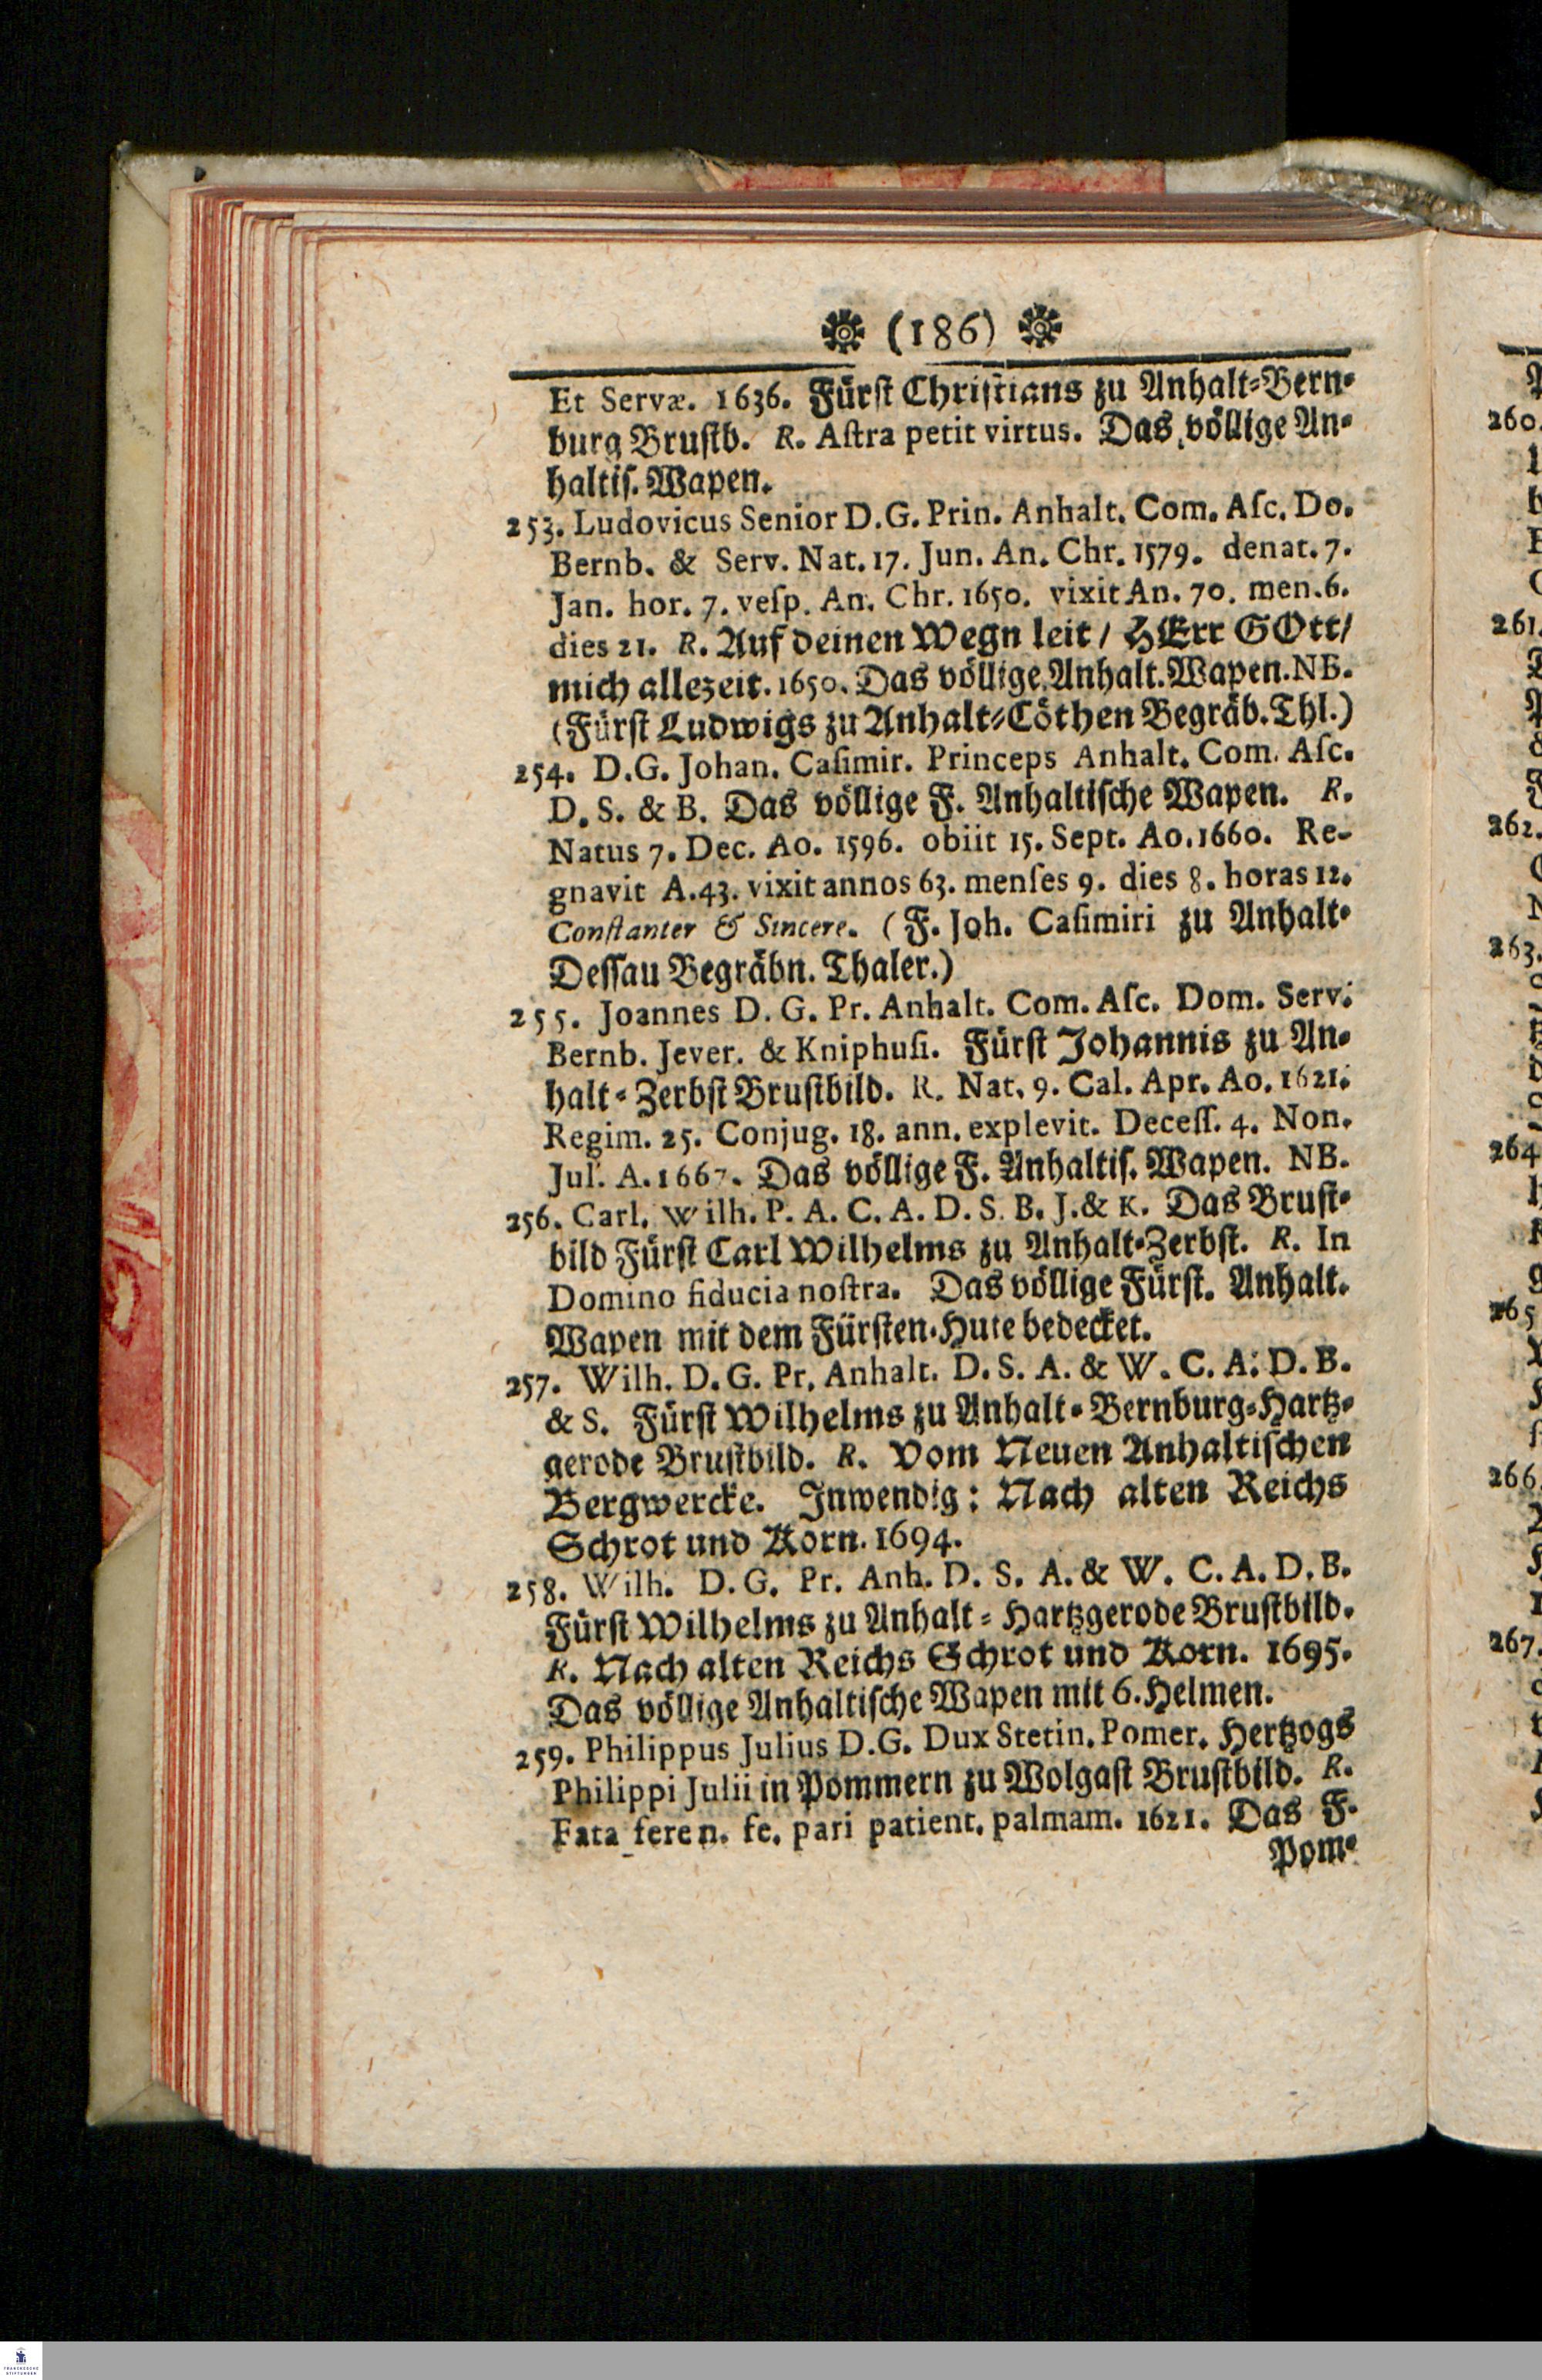 (186)
Et Servæ. 1636. Fürſt Chriſtians zu Anhalt-Bern-
burg Bruſtb. R. Aſtra petit virtus. Das völlige An-
haltiſ. Wapen.
253. Ludovicus Senior D.G. Prin. Anhalt. Com. Aſc. Do.
Bernb. & Serv. Nat. 17. Jun. An. Chr. 1579. denat. 7.
Jan. hor. 7. veſp. An. Chr. 1650. vixit An. 70. men. 6.
dies 21. R. Auf deinen Wegn leit / HErr GOtt /
mich allezeit. 1650. Das völlige Anhalt. Wapen. NB.
(Fürſt Ludwigs zu Anhalt-Cöthen Begräb. Thl.)
254. D.G. Johan. Caſimir. Princeps Anhalt. Com. Aſc.
D. S. & B. Das völlige F. Anhaltiſche Wapen. R.
Natus 7. Dec. Ao. 1596. obiit 15. Sept. Ao. 1660. Re-
gnavit A. 43. vixit annos 63. menſes 9. dies 8. horas 12.
Conſtanter & Sincere. (F. Joh. Caſimiri zu Anhalt-
Deſſau Begräbn. Thaler.)
255. Joannes D. G. Pr. Anhalt. Com. Aſc. Dom. Serv.
Bernb. Jever. & Kniphuſi. Fürſt Johannis zu An-
halt-Zerbſt Bruſtbild. R. Nat. 9. Cal. Apr. Ao. 1621.
Regim. 25. Conjug. 18. ann. explevit. Deceſſ. 4. Non.
Jul. A. 1667. Das völlige F. Anhaltiſ. Wapen. NB.
256. Carl. Wilh. P. A. C. A. D. S. B. J. & K. Das Bruſt-
bild Fürſt Carl Wilhelms zu Anhalt-Zerbſt. R. In
Domino fiducia noſtra. Das völlige Fürſt. Anhalt.
Wapen mit dem Fürſten-Hute bedecket.
257. Wilh. D. G. Pr. Anhalt. D. S. A. & W. C. A. D. B.
& S. Fürſt Wilhelms zu Anhalt-Bernburg-Hartz-
gerode Bruſtbild. R. Vom Neuen Anhaltiſchen
Bergwercke. Inwendig: Nach alten Reichs
Schrot und Korn. 1694.
258. Wilh. D. G. Pr. Anh. D. S. A. & W. C. A. D. B.
Fürſt Wilhelms zu Anhalt-Hartzgerode Bruſtbild.
R. Nach alten Reichs Schrot und Korn. 1695.
Das völlige Anhaltiſche Wapen mit 6. Helmen.
259. Philippus Julius D.G. Dux Stetin. Pomer. Hertzogs
Philippi Julii in Pommern zu Wolgaſt Bruſtbild. R.
Fata feren. fe. pari patient. palmam. 1621. Das F.
Pom-
260.
261.
262.
263.
264
265
266
267.
FRANCKESCHE
STIFTUNGEN